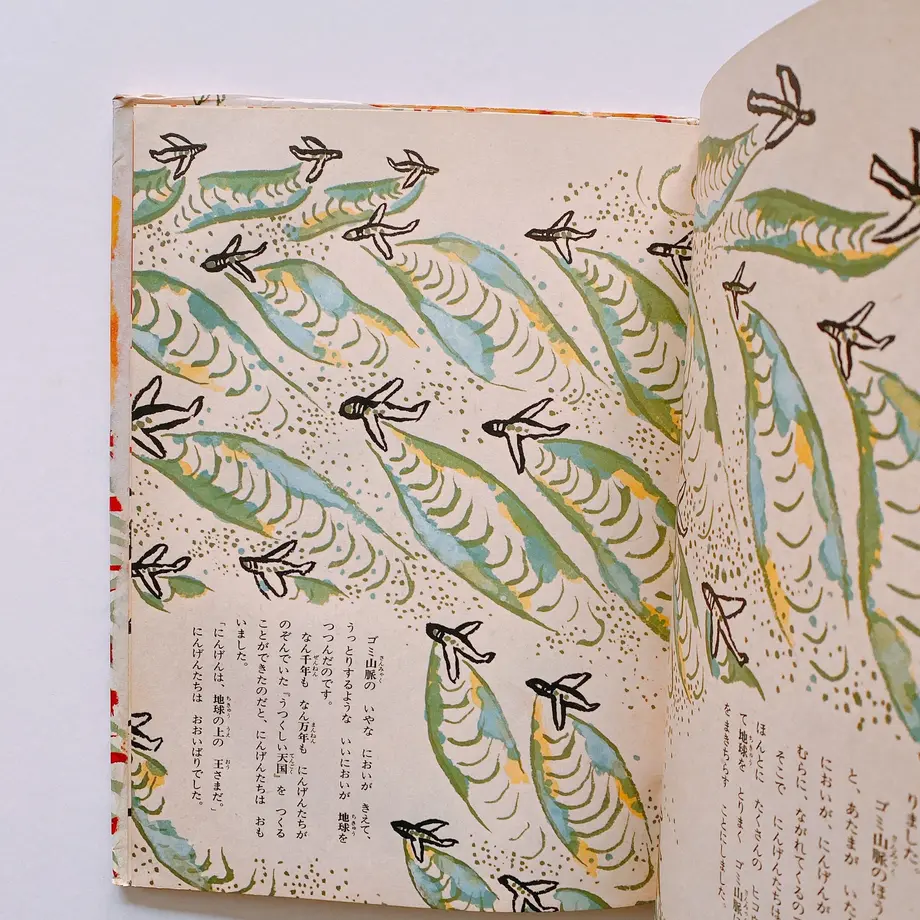 りました
ゴミ山脈のほう
と、あたまが いた
においが、にんげんが
むらに、ながれてくるの
そこで にんげんたちは
ほんとに たくさんの ヒコ
て地球を とりまく ゴミ山脈
をまきちらす ことにしました。
ゴミ山脈の いやな においが きえて、
うっとりするような いいにおいが 地球を
つつんだのです。
なん千年も なん万年も にんげんたちが
のぞんでいた『うつくしい天国』を つくる
ことができたのだと、にんげんたちは おも
いました。
「にんげんは、地球の上の 王さまだ。」
にんげんたちは おおいばりでした。